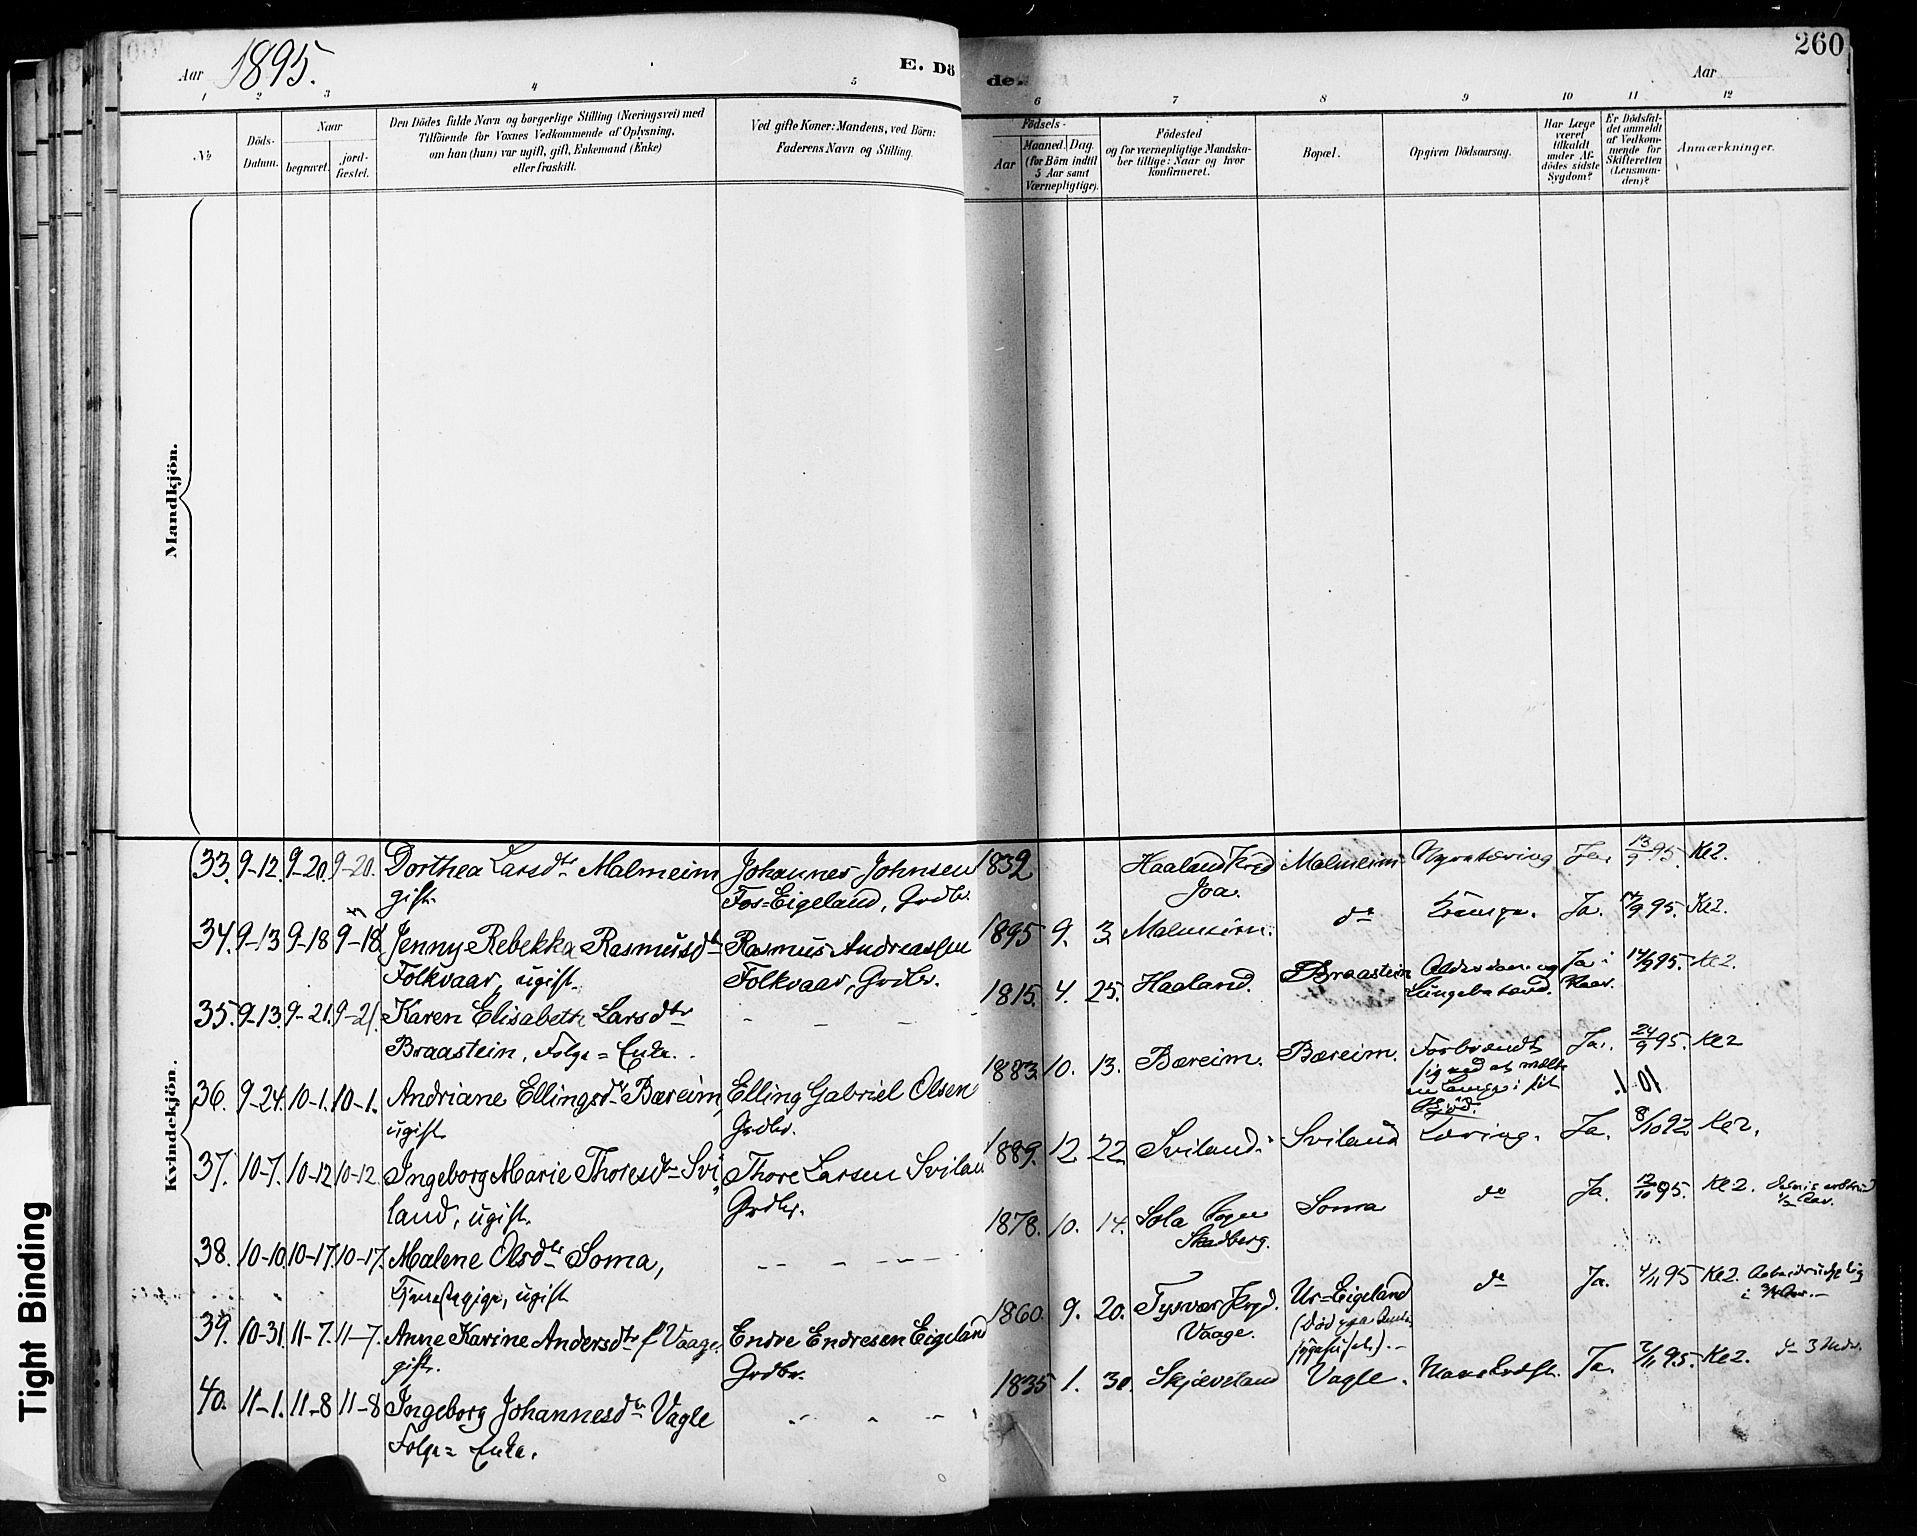 260
Aar 1895. E. Döde. Aar
1 2 3 4 5 6 7 8 9 10 11 12
№
Döds-Datum.
Naar
begravet.
jord-fæstet.
Den Dödes fulde Navn og borgerlige Stilling (Næringsvei) med
Tilföiende for Voxnes Vedkommende af Oplysning,
om han (hun) var ugift, gift, Enkemand (Enke)
eller fraskilt.
Ved gifte Koner: Mandens, ved Börn:
Faderens Navn og Stilling.
Födsels-
Aar
Maaned. Dag.
(for Börn indtil
5 Aar samt
Værnepligtige).
Födested
og for værnepligtige Mandska-
ber tillige: Naar og hvor
konfirmeret.
Bopæl.
Opgiven Dödsaarsag.
Har Læge
været
tilkaldt
under Af-
dödes sidste
Sygdom?
Er Dödsfal-
det anmeldt
af Vedkom-
mende for
Skifteretten
(Lensman-
den)?
Anmærkninger.
Mandkjön.
Kvindekjön.
33. 9-12. 9-20. 9-20. Dorthea Larsdtr Malmeim Johannes Johnsen 1832 Haaland Prgd Malmeim Ja. 13/9 95. Ke2.
gift. Fos=Eigeland, Grdbr. Joa.
34. 9-13 9-18 9-18 Jenny Rebekka Rasmusdtr Rasmus Andreassen 1895 9. 3. Malmeim. do Krampe. Ja. 14/9 95. Ke2.
Folkvaar, ugift. Folkvaar, Grdbr.
35. 9-13. 9-21. 9-21. Karen Elisabeth Larsdtr - - - - 1815. 4. 25. Haaland. Braastein Alderdom og Ja i 14/9 95. Ke2.
Braastein, Folge=Enke. Lungebetænd. Vaar.
36. 9-24. 10-1. 10-1. Andriane Ellingsdtr Bæreim, Elling Gabriel Olsen 1883. 10. 13. Bæreim. Bæreim. Forbrændt Ja. 24/9 95. Ke2
ugift. Grdbr. sig ved at vælte en Lampe i sit
37. 10-7. 10-12. 10-12. Ingeborg Marie Thoresdtr Svi Thore Larsen Svilan 1889. 12. 22. Sviland. Sviland Tæring. Ja. 8/10 92 Ke2.
land, ugift. Grdbr.
38. 10-10. 10-17. 10-17. Malene Olsdtr Soma, - - - - 1878. 10. 14. Sola Sogn Soma do Ja. 12/10 95. Ke2.
Tjenestepige, ugift Skadberg.
39. 10-31. 11-7. 11-7. Anne Karine Andersdtr f. Vaage, Endre Endresen Eigeland 1860. 9. 20. Tysvær Prgd. Ur=Eigeland do Ja. 4/11 95 Ke2.
gift. Grdbr. Vaage.
40. 11-1. 11-8 11-8 Ingeborg Johannesdtr Vagle - - - 1835 1. 30. Skjæveland Vagle. Ja. 2/11 95. Ke2. do 3
Folge= Enke.
Tight Binding